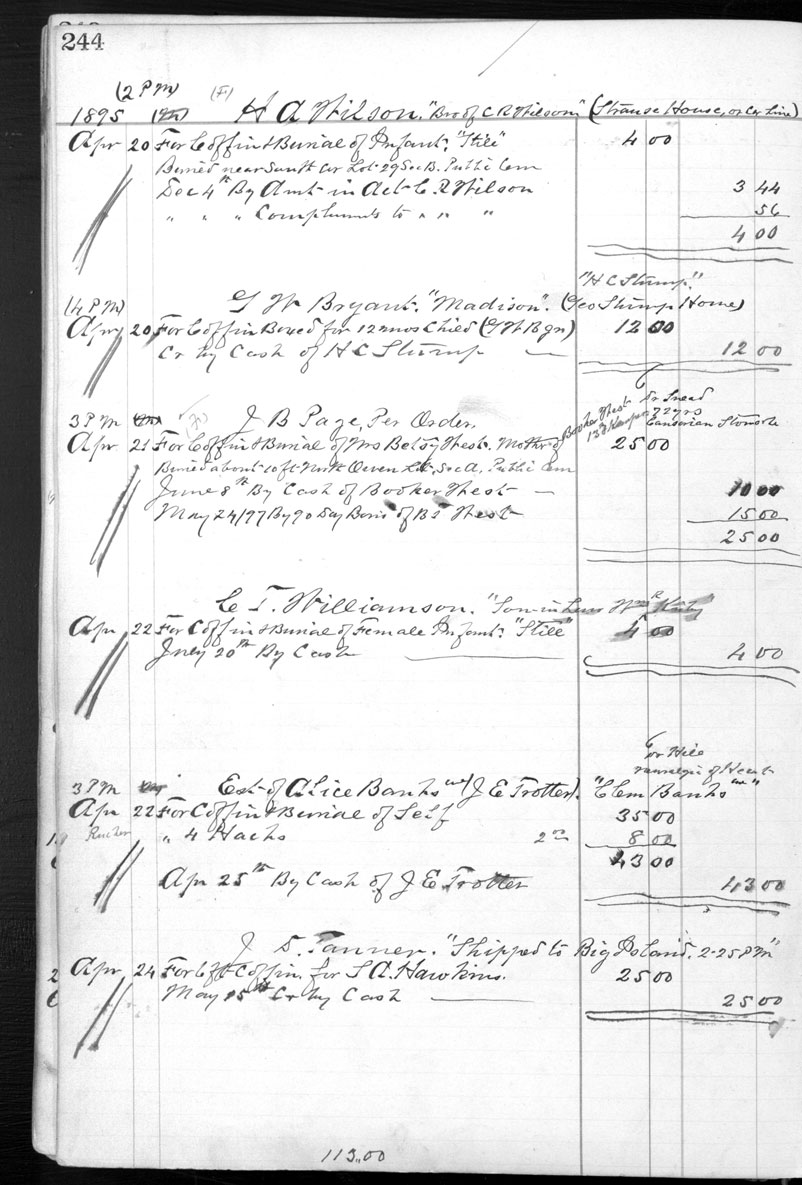 244
(2 PM) (F)
1895 H A Wilson. "Bro of C R Wilson" (Strause House, on Car Line)
Apr 20 For Coffin & Burial of Infant. "Still" 4 00
Buried near South Cor Lot 29 Sec B. Public Cem
Dec 4th By Amt in Act C. R Wilson 3 44
" " " Compliments to " " " 56
4 00
"H C Stump".
(4 PM) G W Bryant. "Madison". (Geo Stump Home)
Apr 20 For Coffin Boxed for 12 mos Child (G W B gn) 12 00
Cr by Cash of H C Stump — 12 00
Dr Snead
72 yrs
3 PM (F) J B Page, Per Order.
Apr 21 For Coffin & Burial of Mrs Betsy West. Mother of Booker West 25 00
Buried about 10 ft North Owen Lot, Sec A, Public Cem
June 8th By Cash of Booker West — 10 00
May 24/97 By 90 Day Bond of B West 15 00
25 00
C T. Williamson. "Son-in-Law Wm R"
Apr 22 For Coffin & Burial of Female Infant. "Still" 4 00
July 20th By Cash 4 00
Dr Hill
neuralgia of Heart
3 PM Est of Alice Banks (J E Trotter). "Clem Banks"
Apr 22 For Coffin & Burial of Self 35 00
Rucker " 4 Hacks 2 00 8 00
43 00
Apr 25th By Cash of J E Trotter 43 00
J S. Tanner. "Shipped to Big Island. 2-25 PM"
Apr 24 For Coffin for S A. Hawkins. 25 00
May 15th Cr by Cash 25 00
113,00